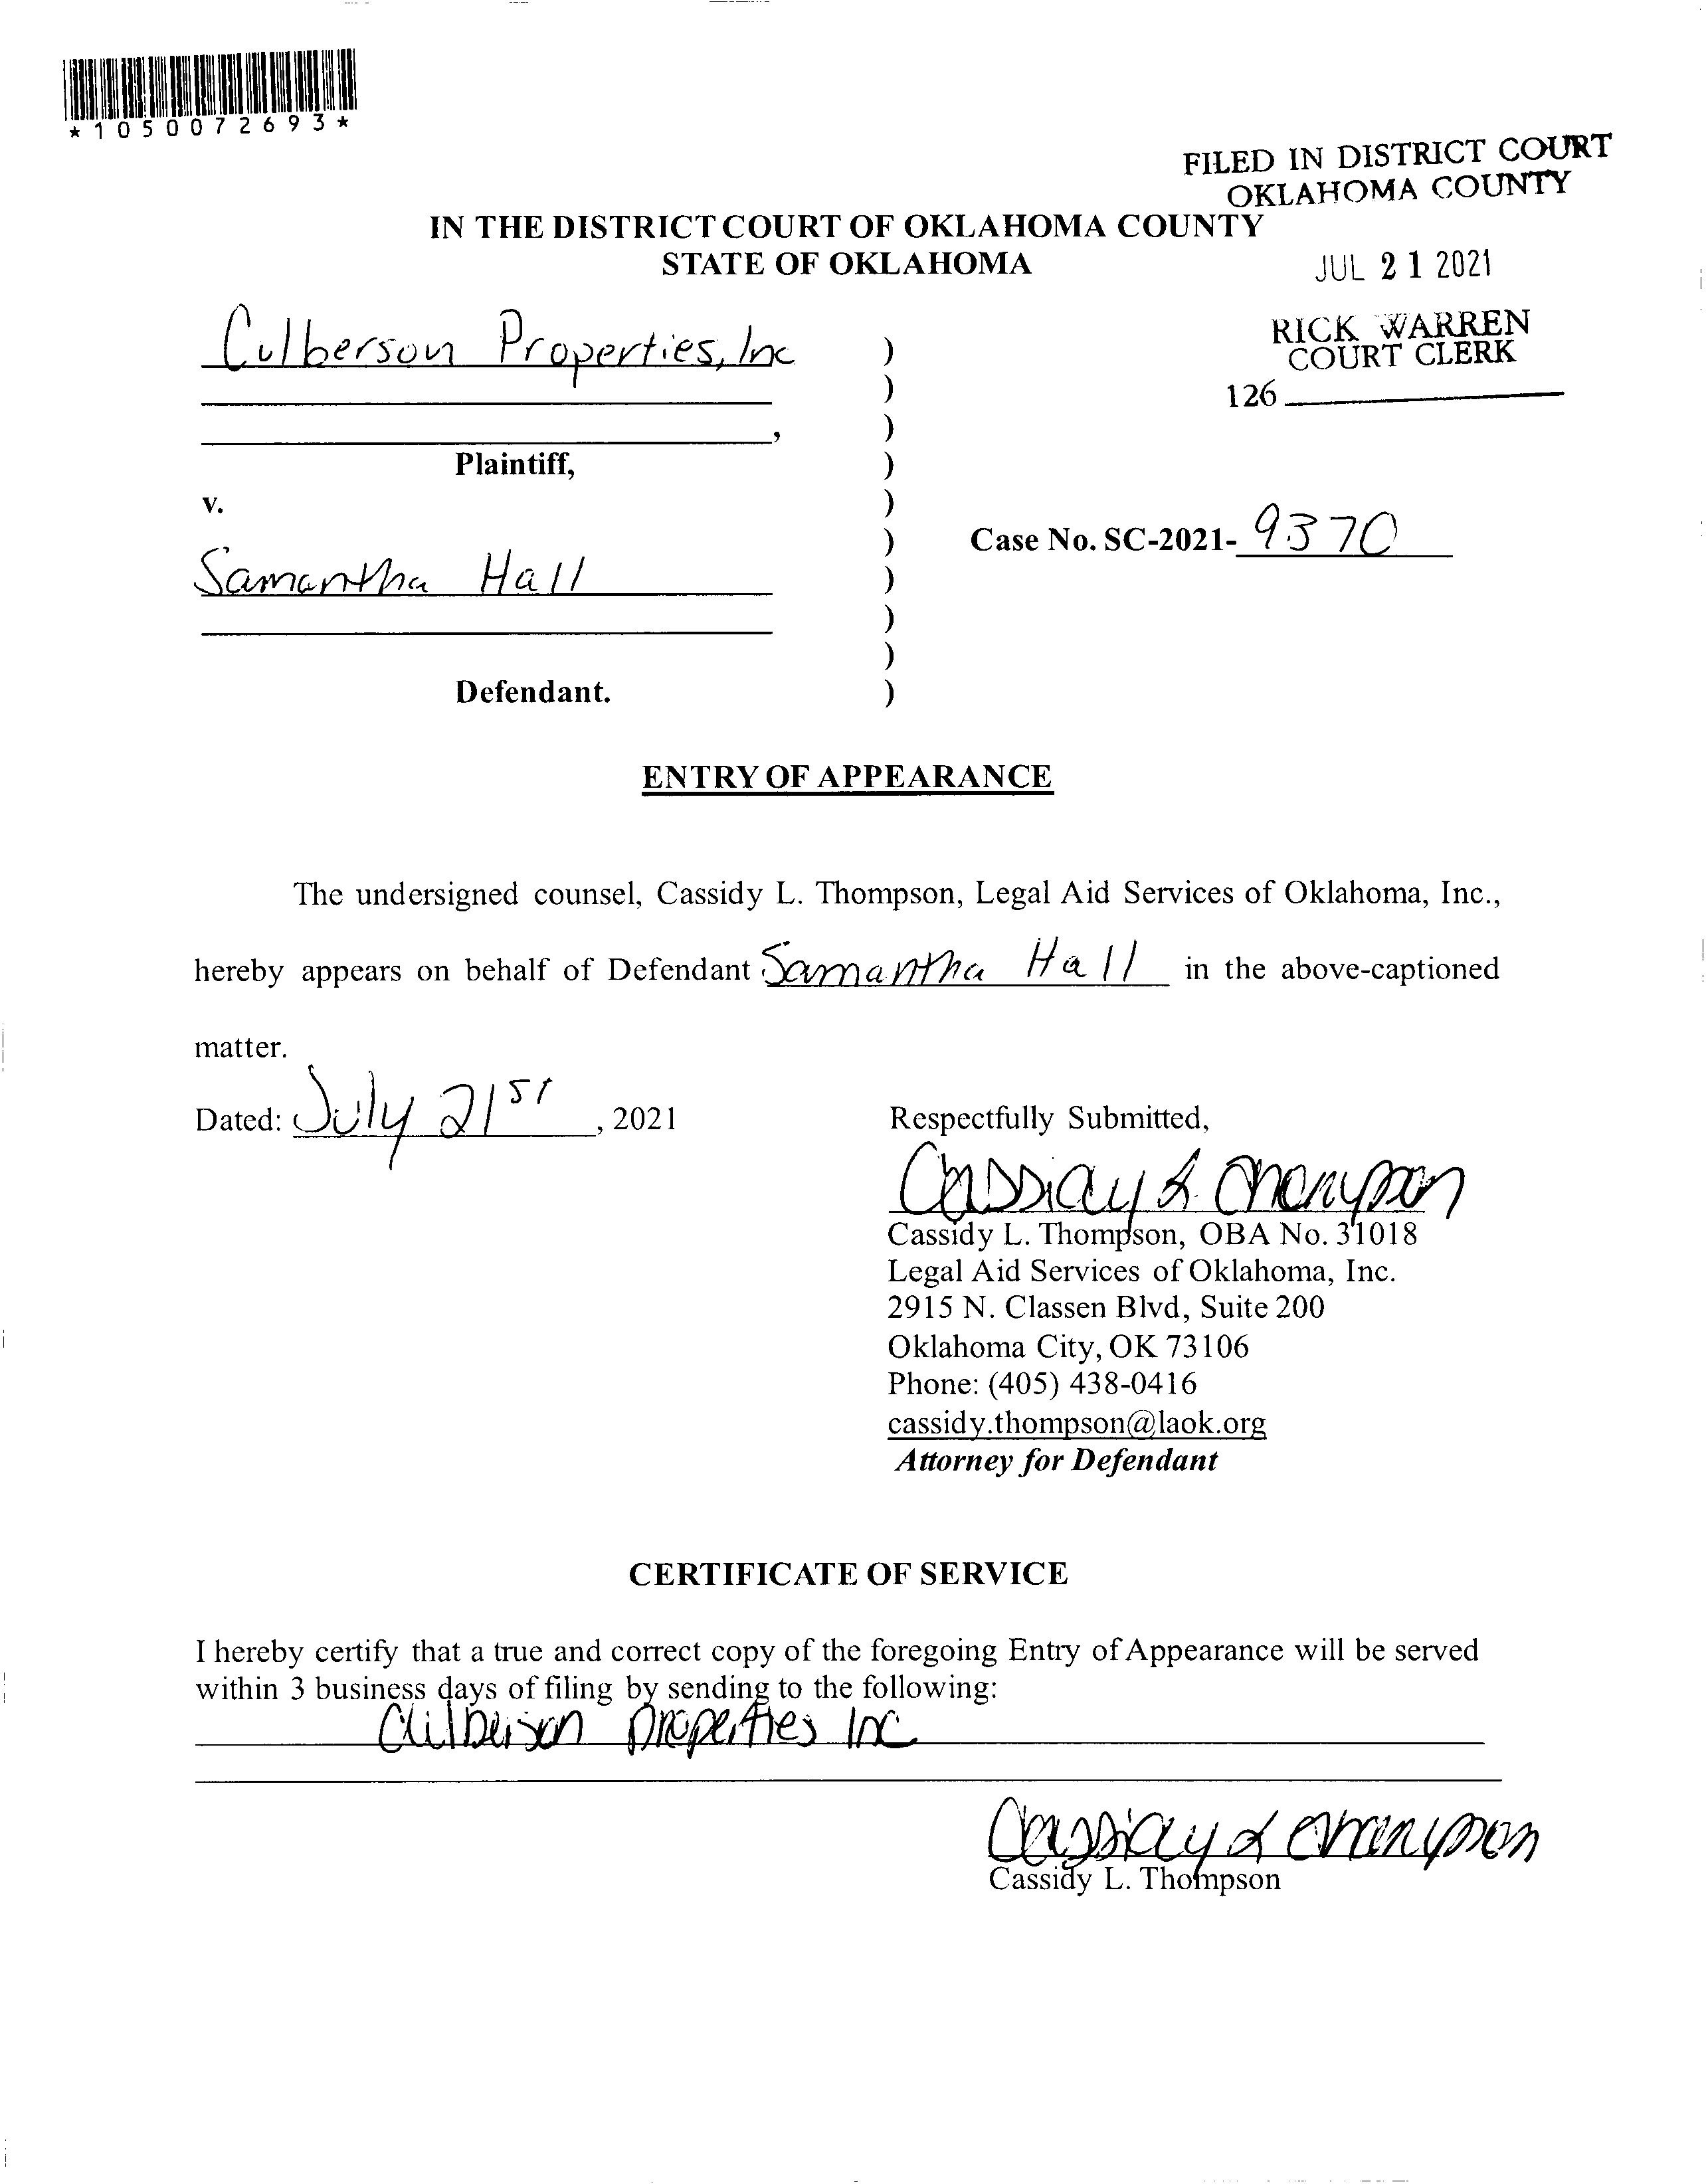 *1050072693*
FILED IN DISTRICT COURT
OKLAHOMA COUNTY
IN THE DISTRICT COURT OF OKLAHOMA COUNTY
STATE OF OKLAHOMA
JUL 21 2021
RICK WARREN
COURT CLERK
126
Culberson Properties, Inc )
)
, )
Plaintiff, )
v. )
Case No. SC-2021- 9370 )
Samantha Hall )
)
)
Defendant. )
ENTRY OF APPEARANCE
The undersigned counsel, Cassidy L. Thompson, Legal Aid Services of Oklahoma, Inc.,
hereby appears on behalf of Defendant Samantha Hall in the above-captioned
matter.
Dated: July 21st, 2021
Respectfully Submitted,
Cassidy L Thompson
Cassidy L. Thompson, OBA No. 31018
Legal Aid Services of Oklahoma, Inc.
2915 N. Classen Blvd, Suite 200
Oklahoma City, OK 73106
Phone: (405) 438-0416
cassidy.thompson@laok.org
Attorney for Defendant
CERTIFICATE OF SERVICE
I hereby certify that a true and correct copy of the foregoing Entry of Appearance will be served
within 3 business days of filing by sending to the following:
Culberson Properties Inc
Cassidy L Thompson
Cassidy L. Thompson